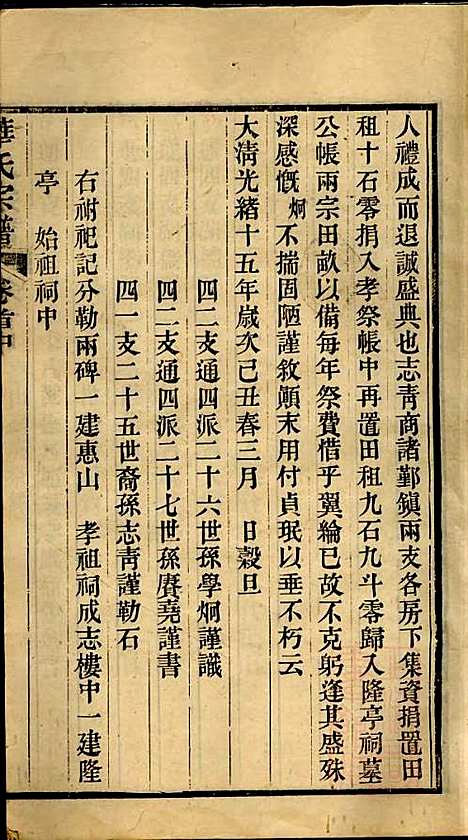 人禮成而退誠盛典也志靑商諸鄞鎭兩支各房下集資捐置田
租十石零捐入孝祭帳中再置田租九石九斗零歸入隆亭祠墓
公帳兩宗田畝以備每年祭費惜乎翼綸已故不克躬逢其盛殊
深感慨烱不揣固陋謹敘顛末用付貞珉以垂不朽云
大淸光緒十五年歲次己丑春三月 日穀旦
四二支通四派二十六世孫學烱謹識
四二支通四派二十七世孫賡堯謹書
四一支二十五世裔孫志靑謹勒石
右祔祀記分勒兩碑一建惠山 孝祖祠成志樓中一建隆
亭 始祖祠中
華氏宗譜 卷首中